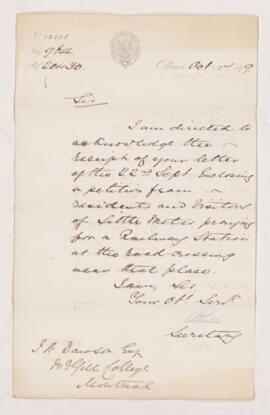 No 12601
Subj 964
Ref 20430
Ottawa Oct 2nd 1879
Sir
I am directed to
acknowledge the
receipt of your letter
of the 22nd Sept. Enclosing
a petition from
residents and visitors
of Little Metis, praying
for a Railway Station
at the road crossing
near that place.
I am, Sir
Your Obt Servt
Secretary
J. W. Dawson Esq
McGill College
Montreal